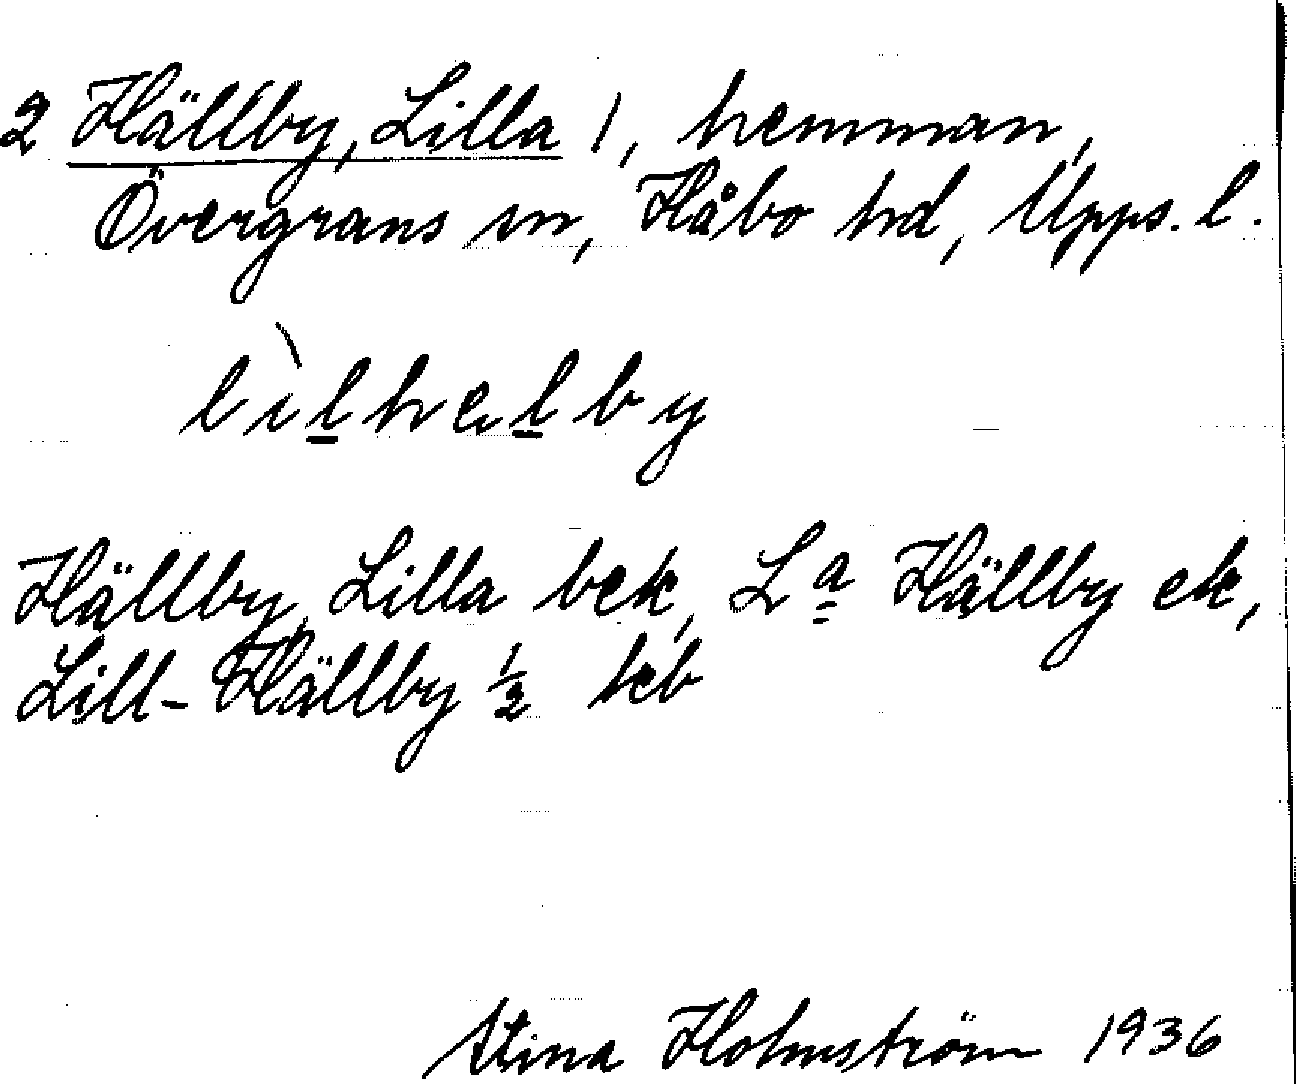 2 Hällby, Lilla 1, hemman,
Övergrans sn, Håbo hd, Upps. l.
lìlhelby
Hällby, Lilla bek, La Hällby ek,
Lill-Hällby ½ jeb
Stina Holmström 1936